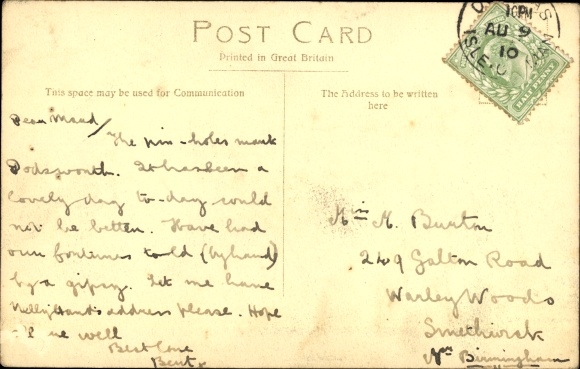 POST CARD
Printed in Great Britain
This space may be used for Communication
The Address to be written
here
10 PM
AU 9
10
ISLE O
HALFPENNY
Dear Maud/
The pin-holes mark
Dodsworth. It has been a
lovely day to-day could
not be better. Have had
our fortunes told (by hand)
by a gipsy. Let me have
Nelly address please. Hope
all are well
Best love
Bert x
Miss M. Burton
249 Galton Road
Warley Woods
Smethwick
Nr Birmingham